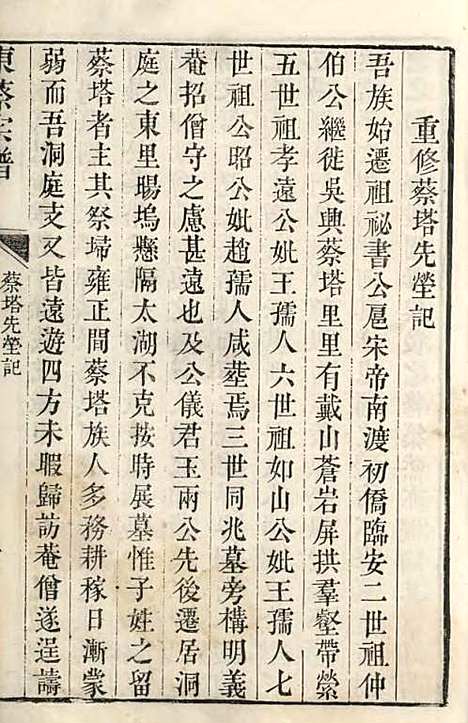 重修蔡塔先塋記
吾族始遷祖祕書公扈宋帝南渡初僑臨安二世祖仲
伯公繼徙吳興蔡塔里里有戴山蒼岩屏拱羣壑帶縈
五世祖孝遠公妣王孺人六世祖如山公妣王孺人七
世祖公昭公妣趙孺人咸塟焉三世同兆墓旁構明義
菴招僧守之慮甚遠也及公儀君玉兩公先後遷居洞
庭之東里暘塢懸隔太湖不克按時展墓惟子姓之留
蔡塔者主其祭埽雍正間蔡塔族人多務耕稼日漸蒙
弱而吾洞庭支又皆遠遊四方未暇歸訪菴僧遂逞譸
東蔡宗譜
蔡塔先塋記